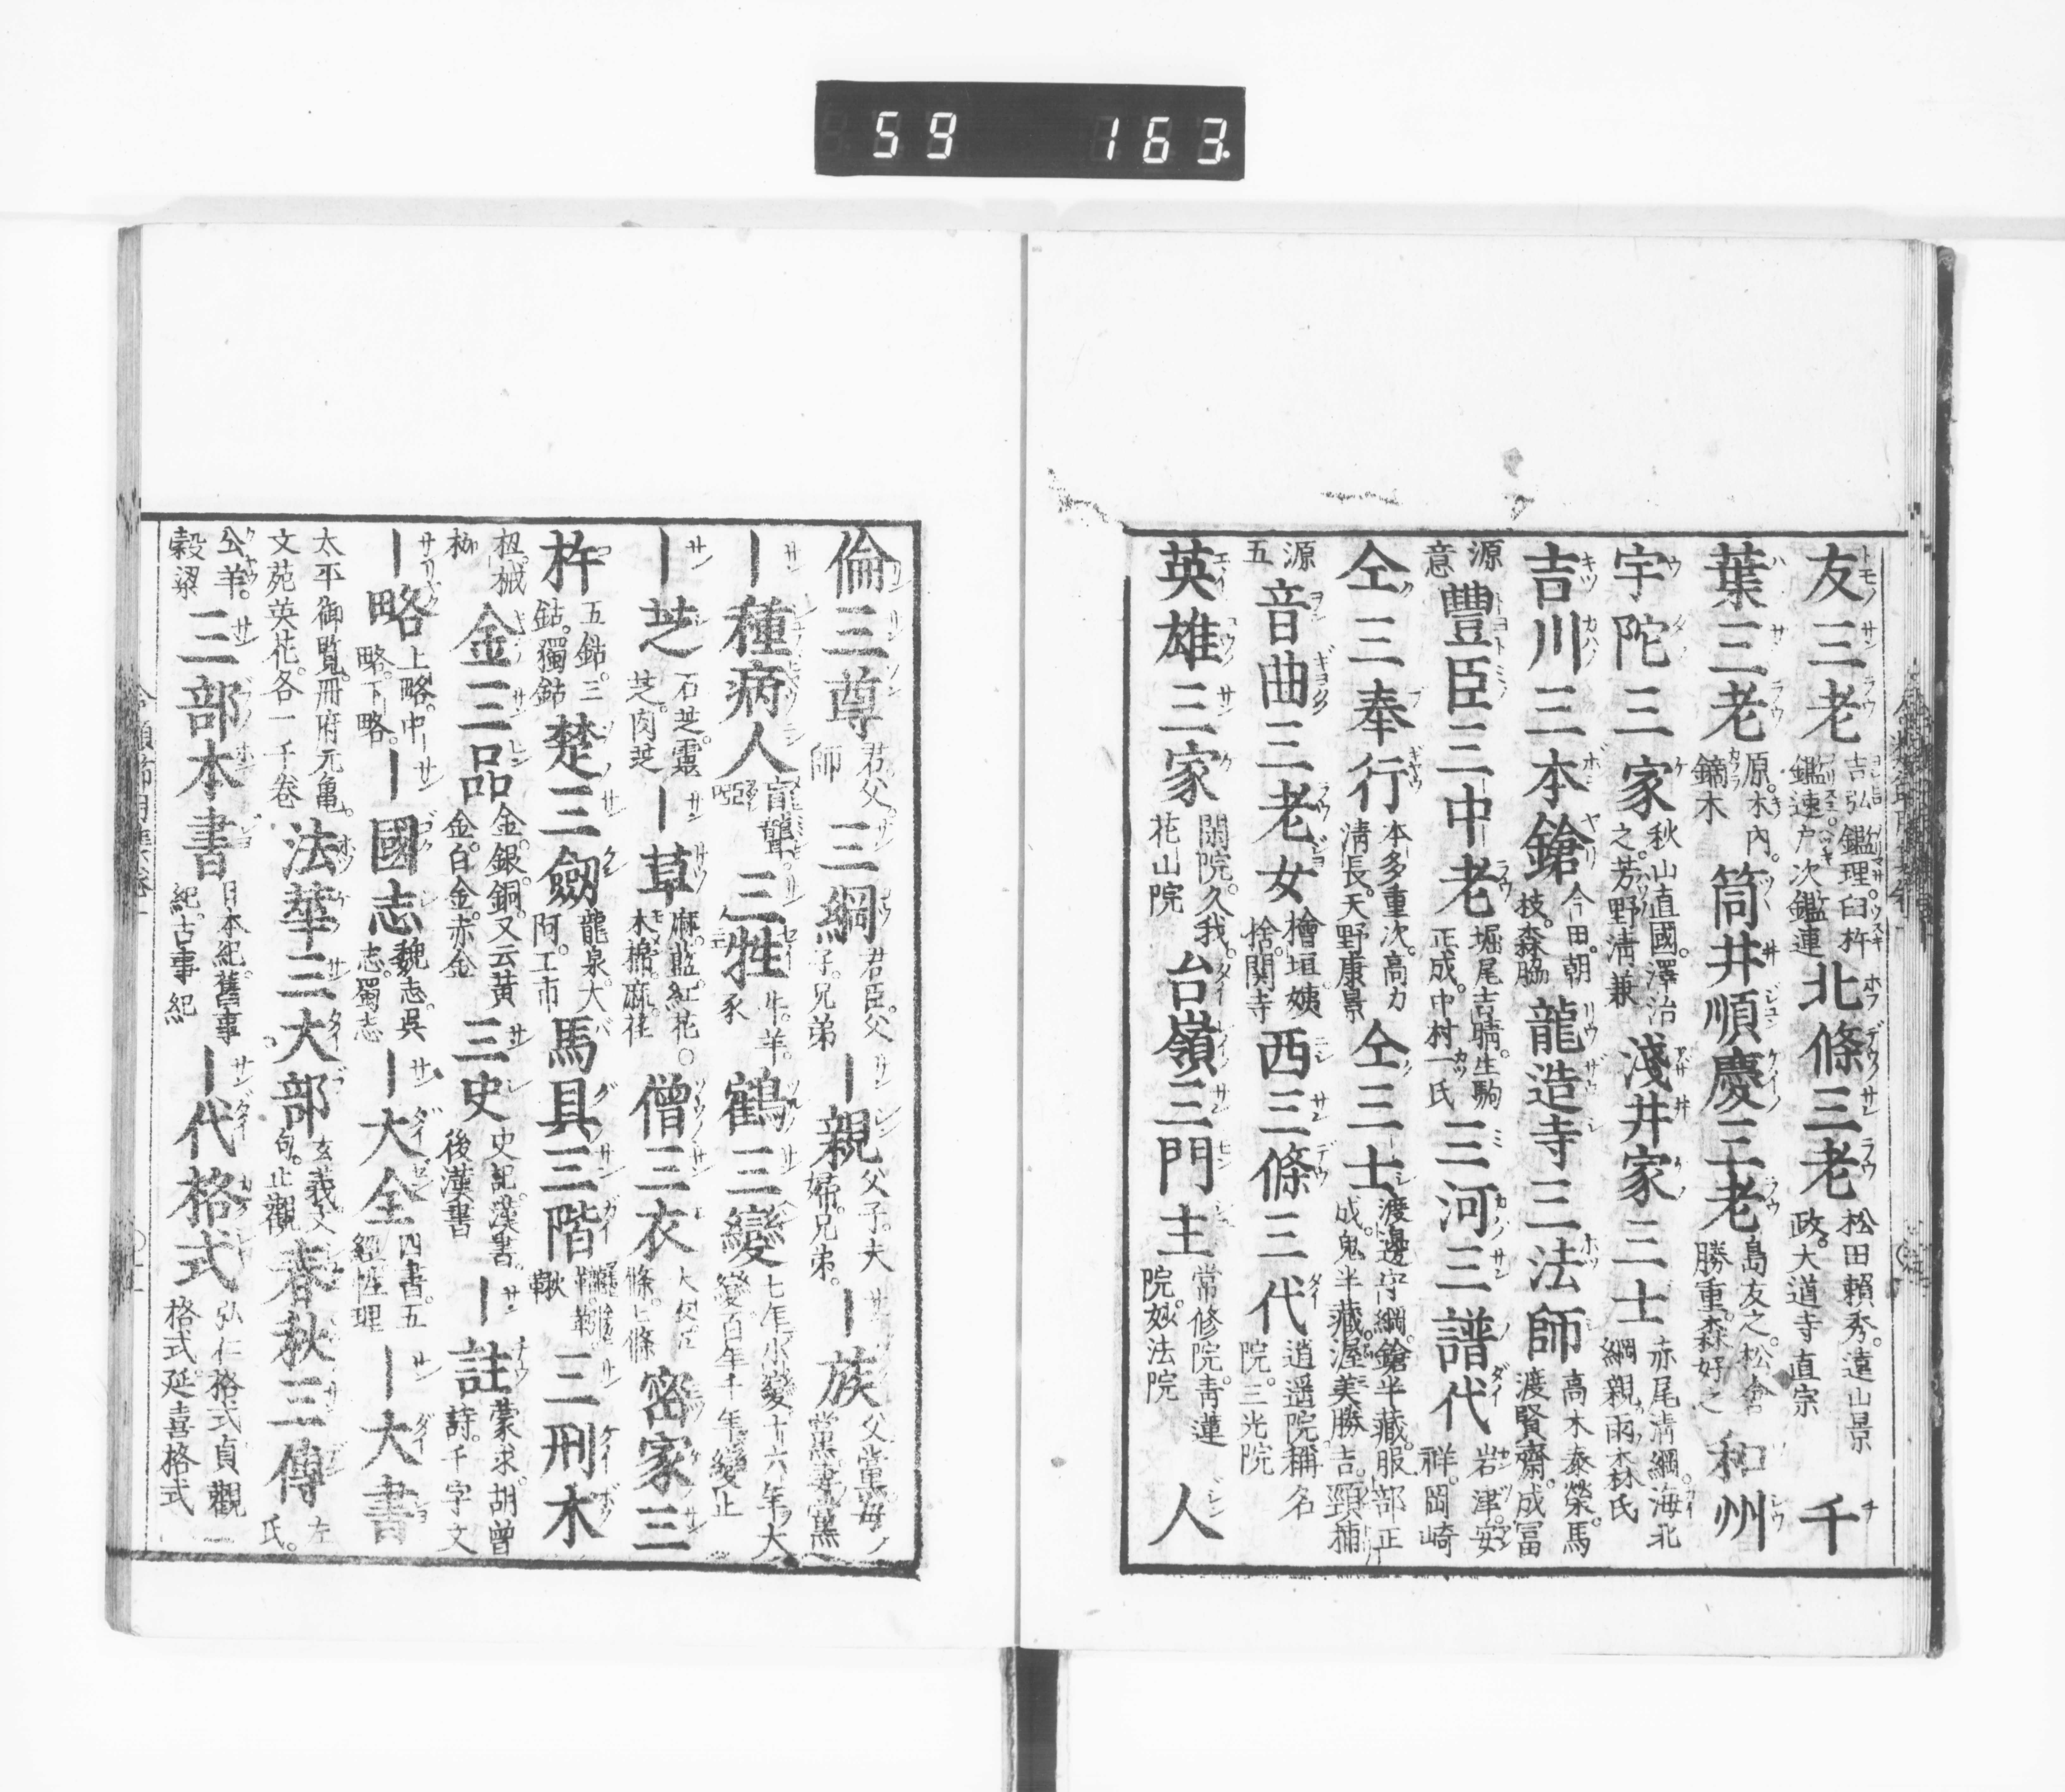 59 163
友三老 吉弘鑑理。臼杵鑑速。戸次鑑連 北條三老 松田頼秀。遠山景政。大道寺直宗 千
葉三老 原。木内。鏑木 筒井順慶三老 島友之。松倉勝重。森好之 和州
宇陀三家 秋山直國。澤治之。芳野清兼 淺井家三士 赤尾清綱。海北綱親。雨森氏
吉川三本鎗 今田。朝枝。森脇 龍造寺三法師 高木泰榮。馬渡賢齋。成冨
源意 豐臣三中老 堀尾吉晴。生駒正成。中村一氏 三河三譜代 岩津。安祥。岡崎
仝三奉行 本多重次。高力清長。天野康景 仝三士 渡邊守綱。鎗半藏。服部正成。鬼半藏。渥美勝吉。頸捕
源五 音曲三老女 檜垣。姨捨。関寺 西三條三代 逍遥院。稱名院。三光院
英雄三家 閑院。久我。花山院 台嶺三門主 常修院。青蓮院。妙法院 人
倫三尊 君。父。師 三綱 君臣。父子。兄弟 ー親 父子。夫婦。兄弟。 ー族 父黨。母黨。妻黨
ー種病人 盲。聾。啞 三牲 牛。羊。豕 鶴三變 七年小變十六年大變百年千年變止
ー芝 石芝。靈芝。肉芝 ー草 麻。藍。紅花。木棉。麻。荏 ○僧三衣 密家三
杵 五鈷。三鈷。獨鈷 楚三劔 龍泉。大阿。工市 馬具三階 鞦 三刑木
杻。械。枷 金三品 金。銀。銅。又云黄金。白金。赤金 三史 史記。漢書。後漢書 ー註 蒙求。胡曾詩。千字文
ー略 上略。中略。下略。 ー國志 魏志。吳志。蜀志 ー大全 四書。五經。性理 ー大書
太平御覧。冊府元亀。文苑英花。各一千卷 法華三大部 玄義。文句。止觀 春秋三傳 左氏。
公羊。穀梁 三部本書 日本紀。舊事紀。古事紀 ー代格式 弘仁格式貞觀格式。延喜格式